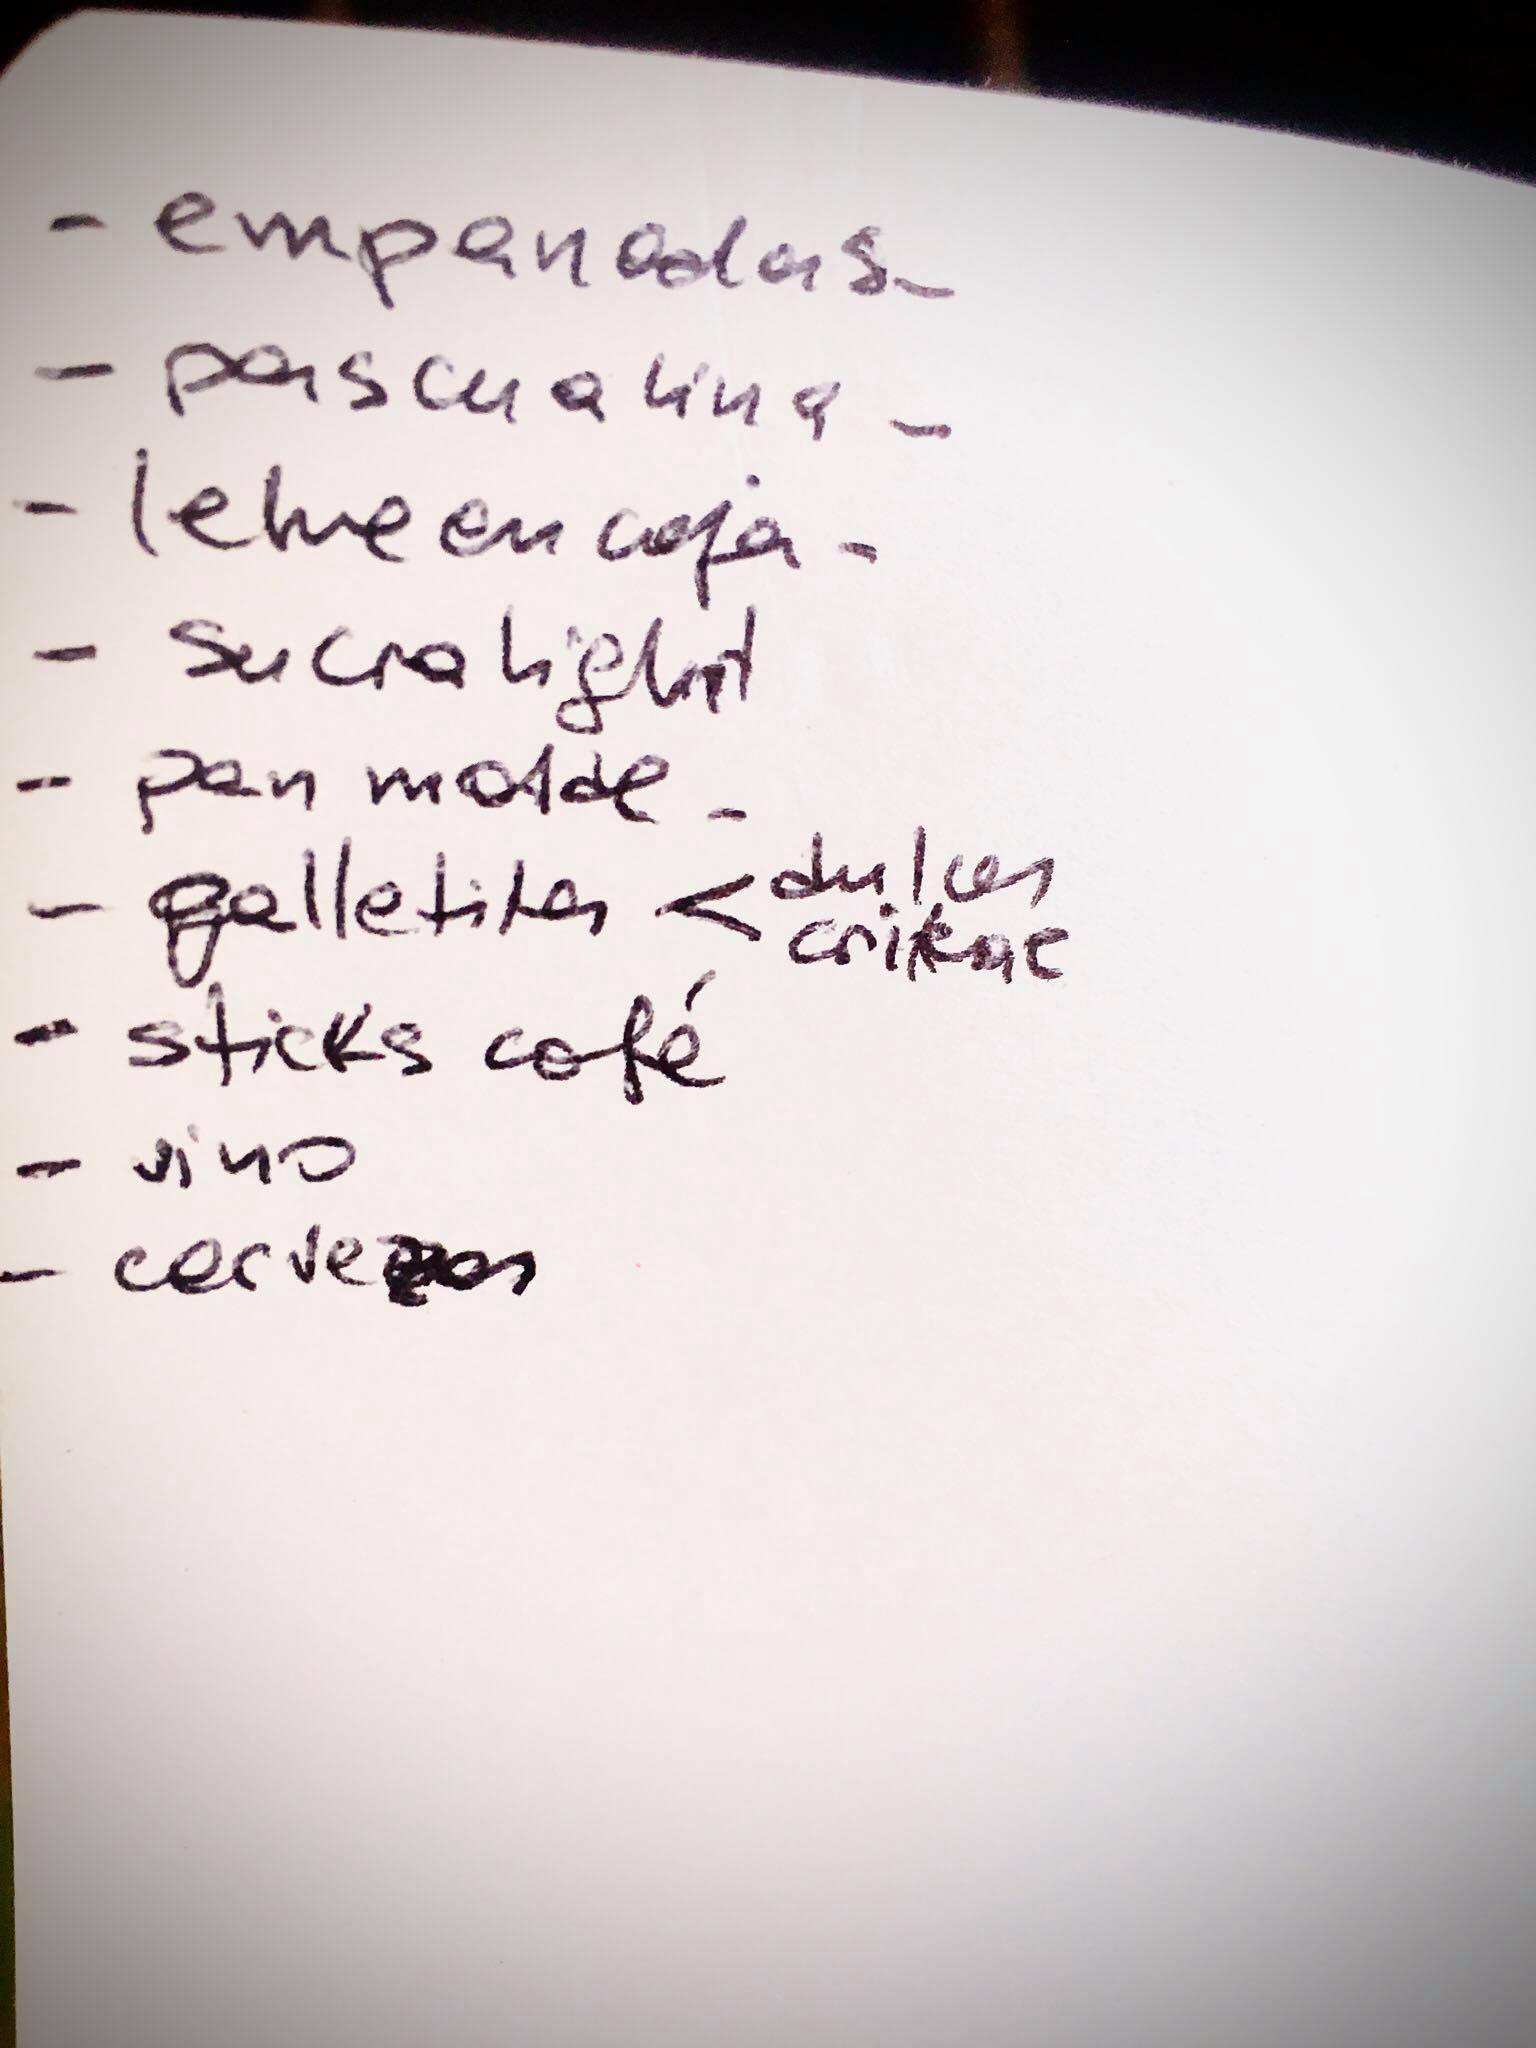 - empanadas -
- pascualina -
- leche en caja -
- sucralight
- pan molde -
- galletitas < dulces
criollitas
- sticks café
- vino
- cervezas